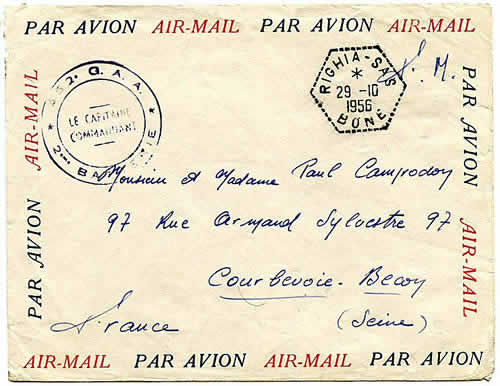 PAR AVION AIR-MAIL PAR AVION AIR-MAIL PAR AVION
AIR-MAIL
PAR AVION
452e G. A. A.
LE CAPITAINE
COMMANDANT
2me BATTERIE
RIGHIA-SAS
29 -10
1956
BONE
F. M.
Monsieur et Madame Paul Camprodon
97 Rue Armand Sylvestre 97
Courbevoie - Becon
(Seine)
France
PAR AVION
AIR-MAIL
AIR-MAIL PAR AVION AIR-MAIL PAR AVION AIR-MAIL